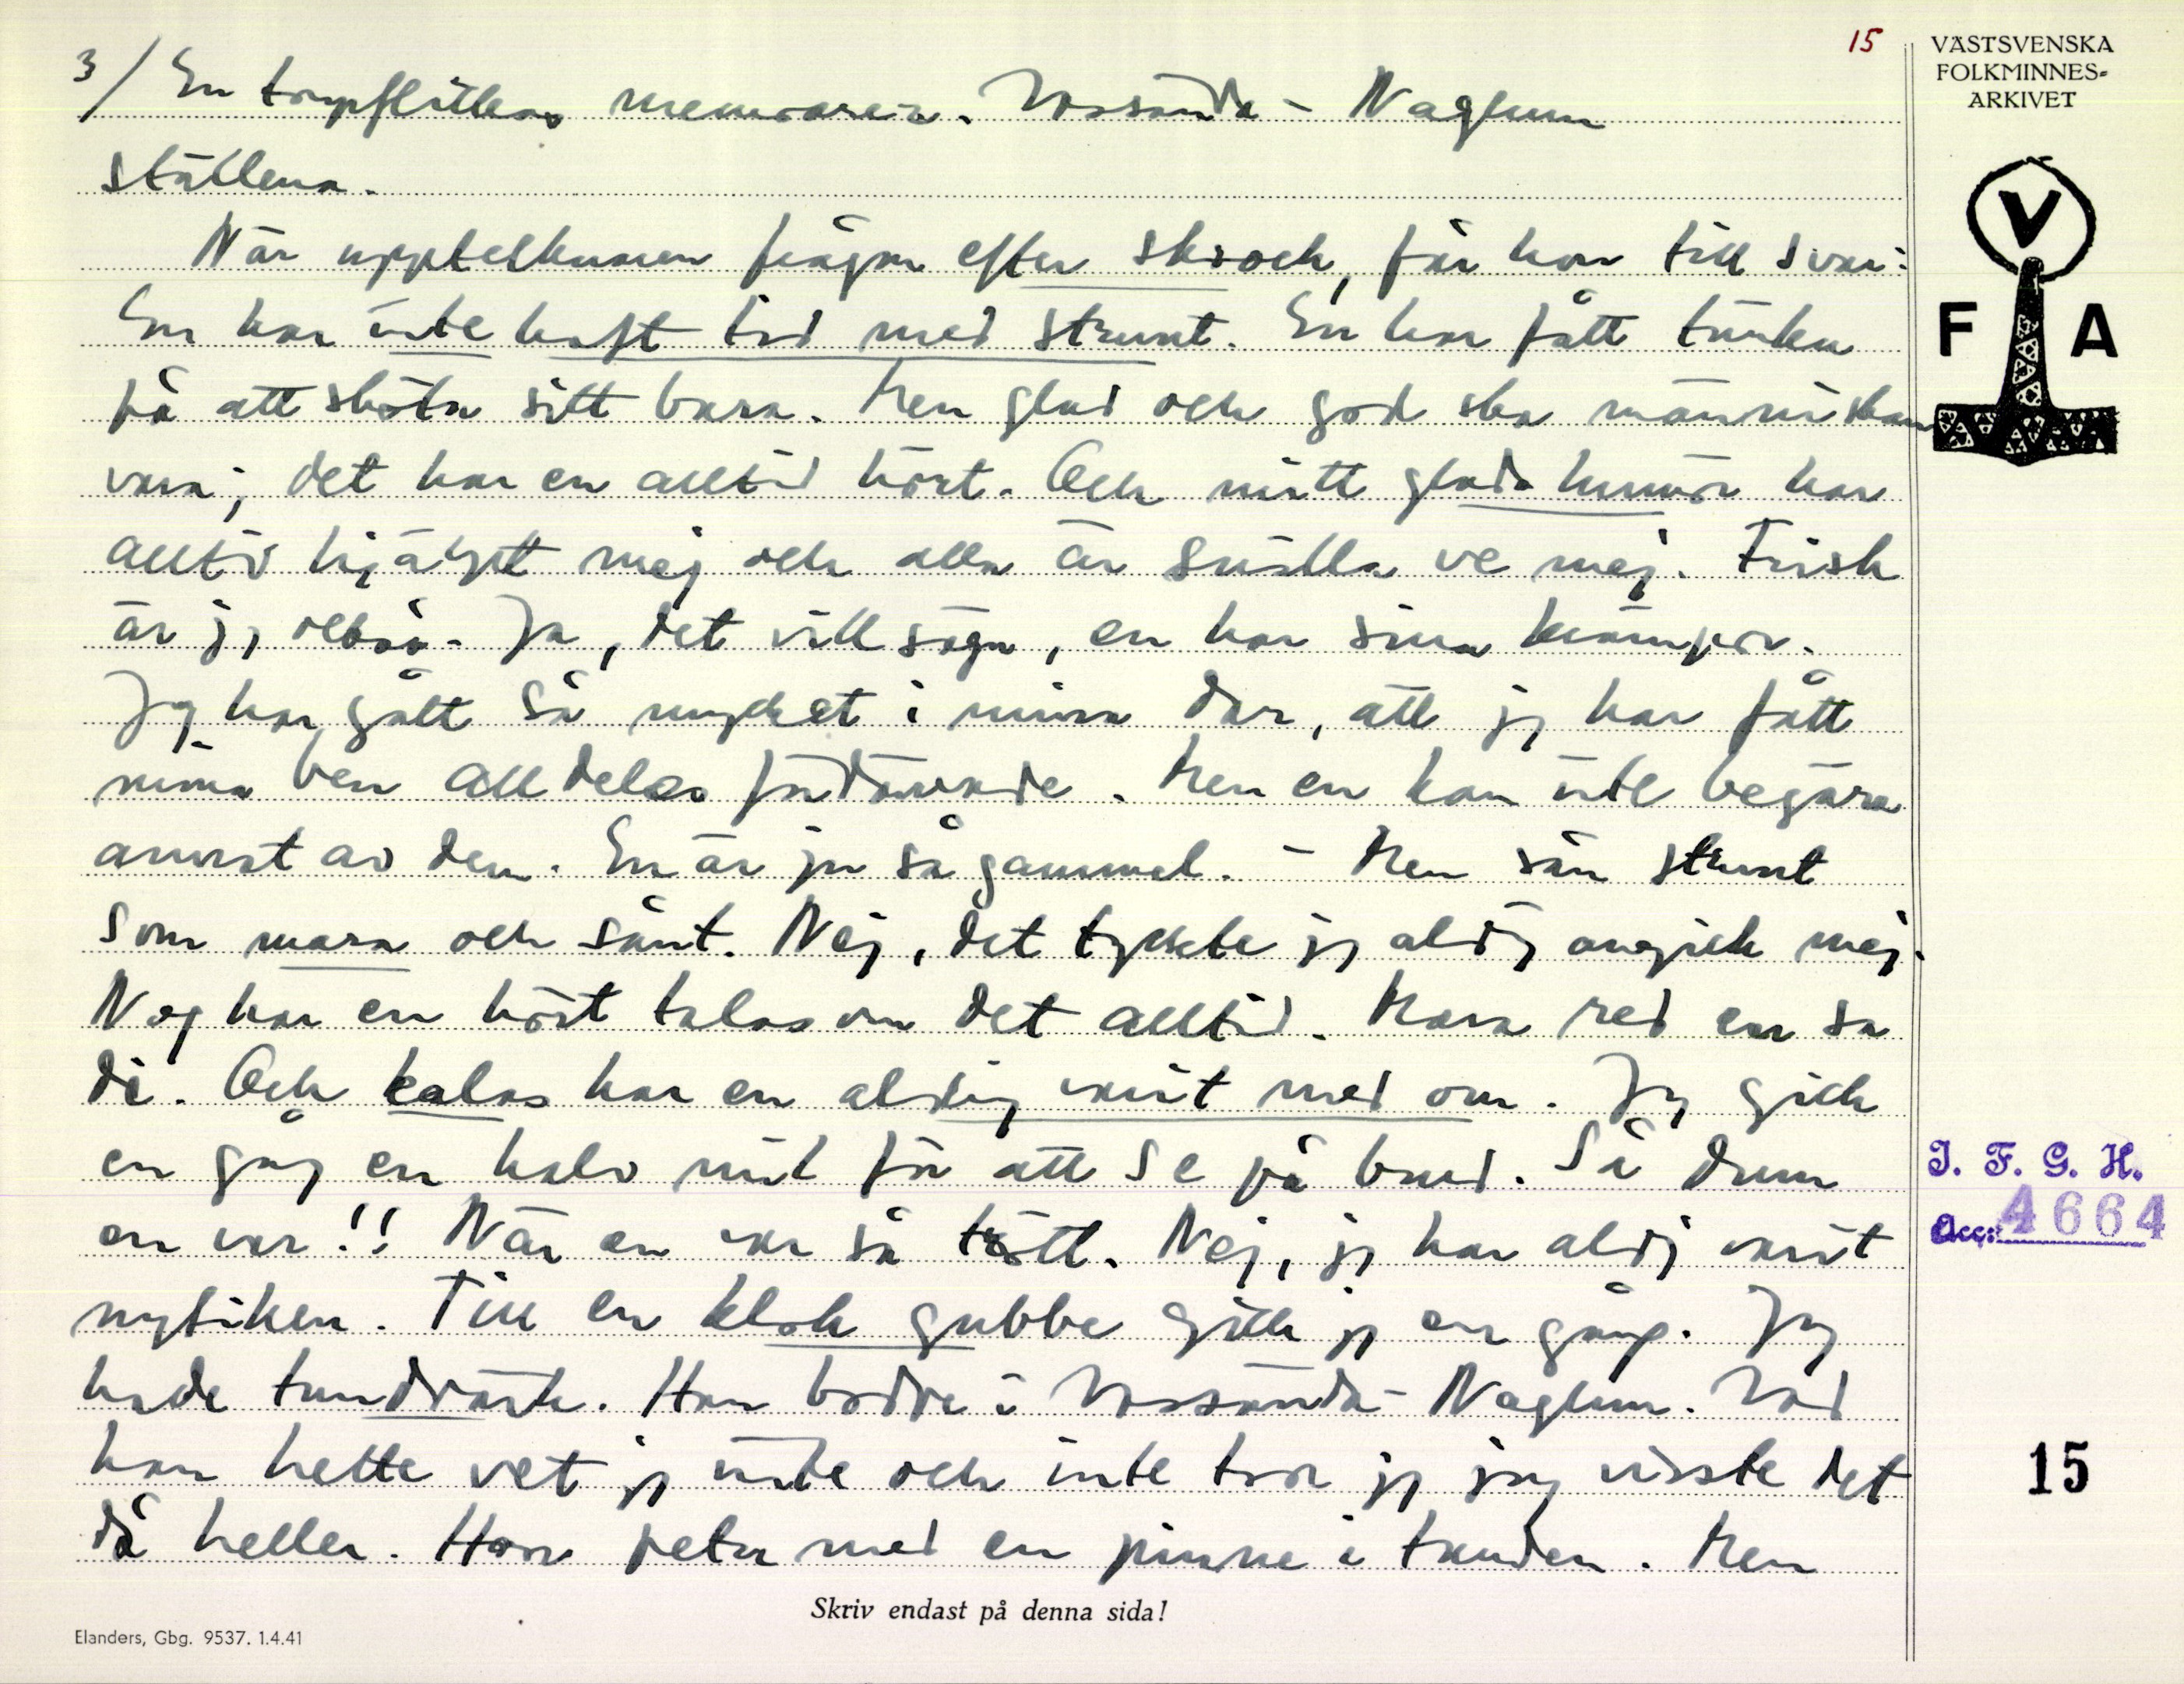 15
VÄSTSVENSKA
FOLKMINNES-
ARKIVET
V
F A
3/ En torpflickas memoarer. Vassända - Naglum
ställena.
När upptecknaren frågar efter skrock, får hon till svar:
En har inte haft tid med strunt. En har fått tänka
på att sköta sitt bara. Men glad och god ska människan
vara; det har en alltid hört. Och mitt glada humör har
alltid hjälpt mej och alla är snälla ve mej. Frisk
är jag också. Ja, det vill säga, en har sina krämpor.
Jag har gått så mycket i mina dar, att jag har fått
mina ben alldeles fördärvade. Men en kan inte begära
annat av dem. En är ju så gammel. - Men sån strunt
som mara och sånt. Nej, det tyckte jag aldrig angick mej.
Nog har en hört talas om det alltid. Mara red en sa
di. Och kalas har en aldrig varit med om. Jag gick
en gång en halv mil för att se på brud. Så dum
en var!! När en var så trött. Nej, jag har aldrig varit
nyfiken. Till en klok gubbe gick jag en gång. Jag
hade tandvärk. Han bodde i Vassända - Naglum. Vad
han hette vet jag inte och inte tror jag jag visste det
då heller. Han peta med en pinne i tanden. Men
I. F. G. H.
Acc: 4664
15
Skriv endast på denna sida!
Elanders, Gbg. 9537. 1.4.41